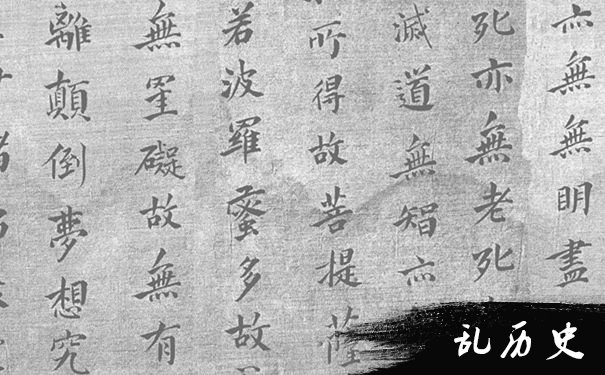 亦無無明盡
死亦無老死
滅道無智亦
所得故菩提薩
若波羅蜜多故
無罣礙故無有
離顛倒夢想究
乱历史